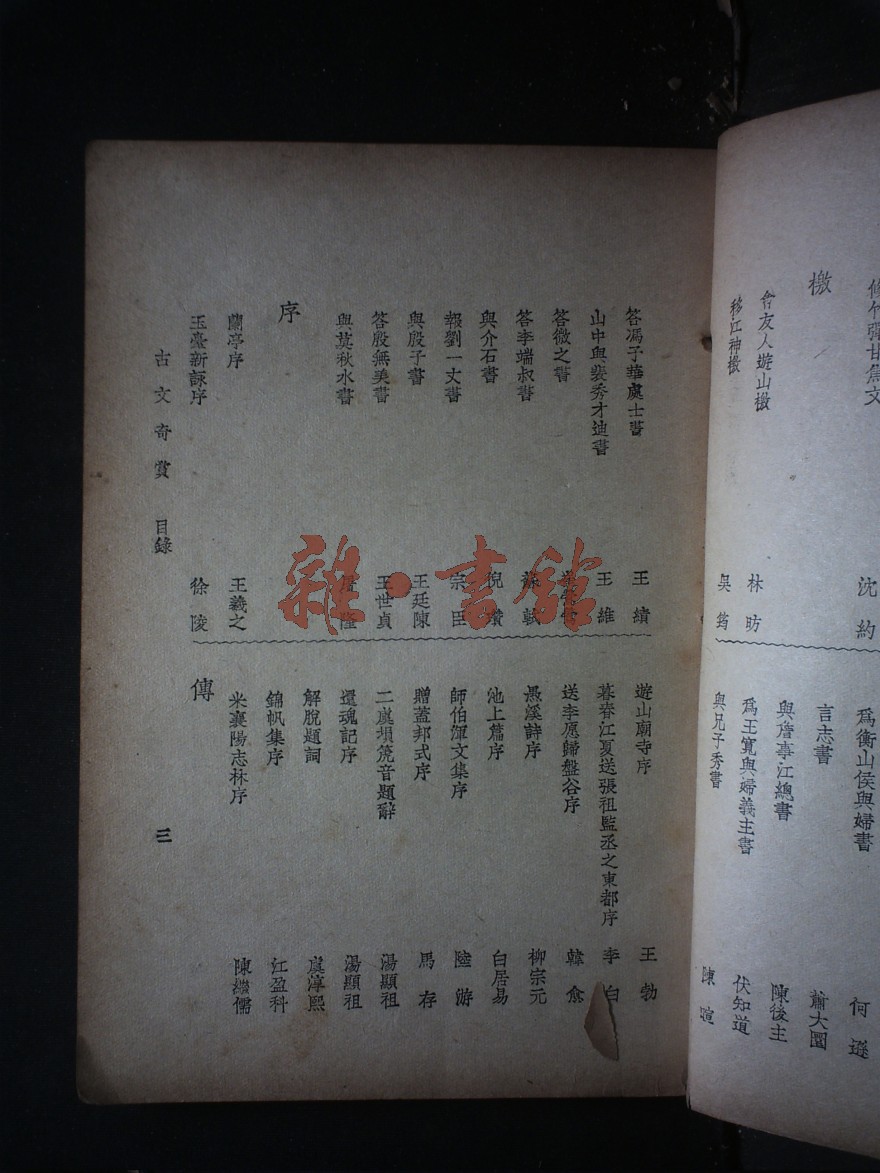 檄
會友人遊山檄 林昉
移江神檄 吳筠
沈約
爲衡山侯與婦書 何遜
言志書 蕭大圜
與詹事江總書 陳後主
爲王寬與婦義主書 伏知道
與兄子秀書 陳暄
答馮子華處士書 王績
山中與裴秀才迪書 王維
答微之書
答李端叔書 蘇軾
與介石書 倪瓚
報劉一丈書 宗臣
與殷子書 王廷陳
答殷無美書 王世貞
與莫秋水書 屠隆
序
蘭亭序 王羲之
玉臺新詠序 徐陵
遊山廟寺序 王勃
暮春江夏送張祖監丞之東都序 李白
送李愿歸盤谷序 韓愈
愚溪詩序 柳宗元
池上篇序 白居易
師伯渾文集序 陸游
贈蓋邦式序 馬存
二虞塤箎音題辭 湯顯祖
還魂記序 湯顯祖
解脫題詞 虞淳熙
錦帆集序 江盈科
米襄陽志林序 陳繼儒
傳
古文奇賞 目錄
三
雜·書館